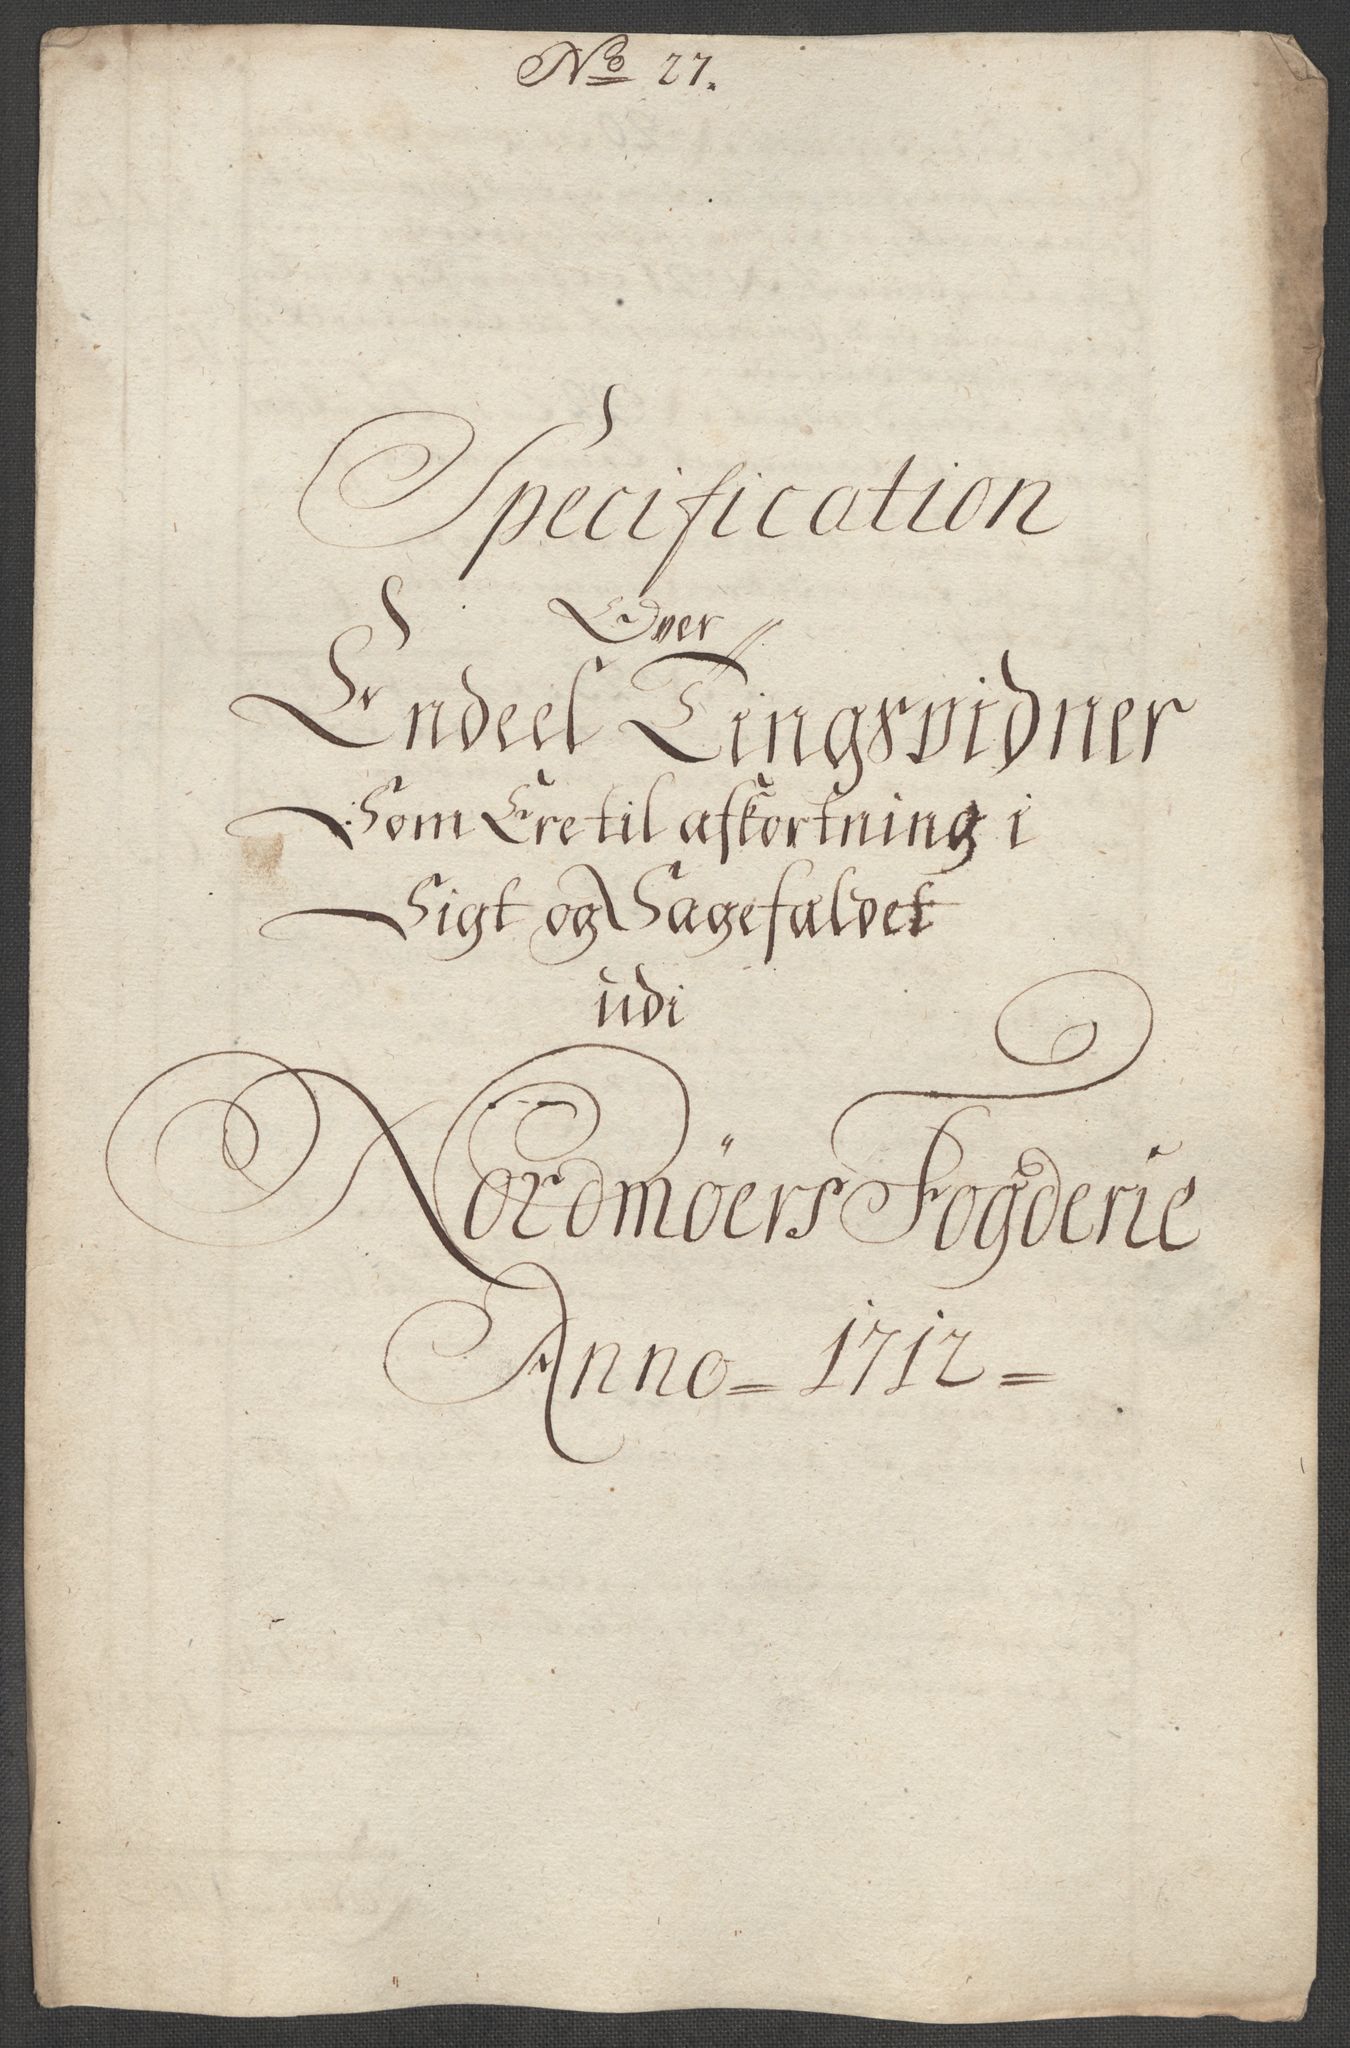 No 27.
Specification
Over
Endeel Tingsvidner
Som Ere til afkortning i
Sigt og Sagefaldet
udi
Nordmöers Fogderie
Anno = 1712 =